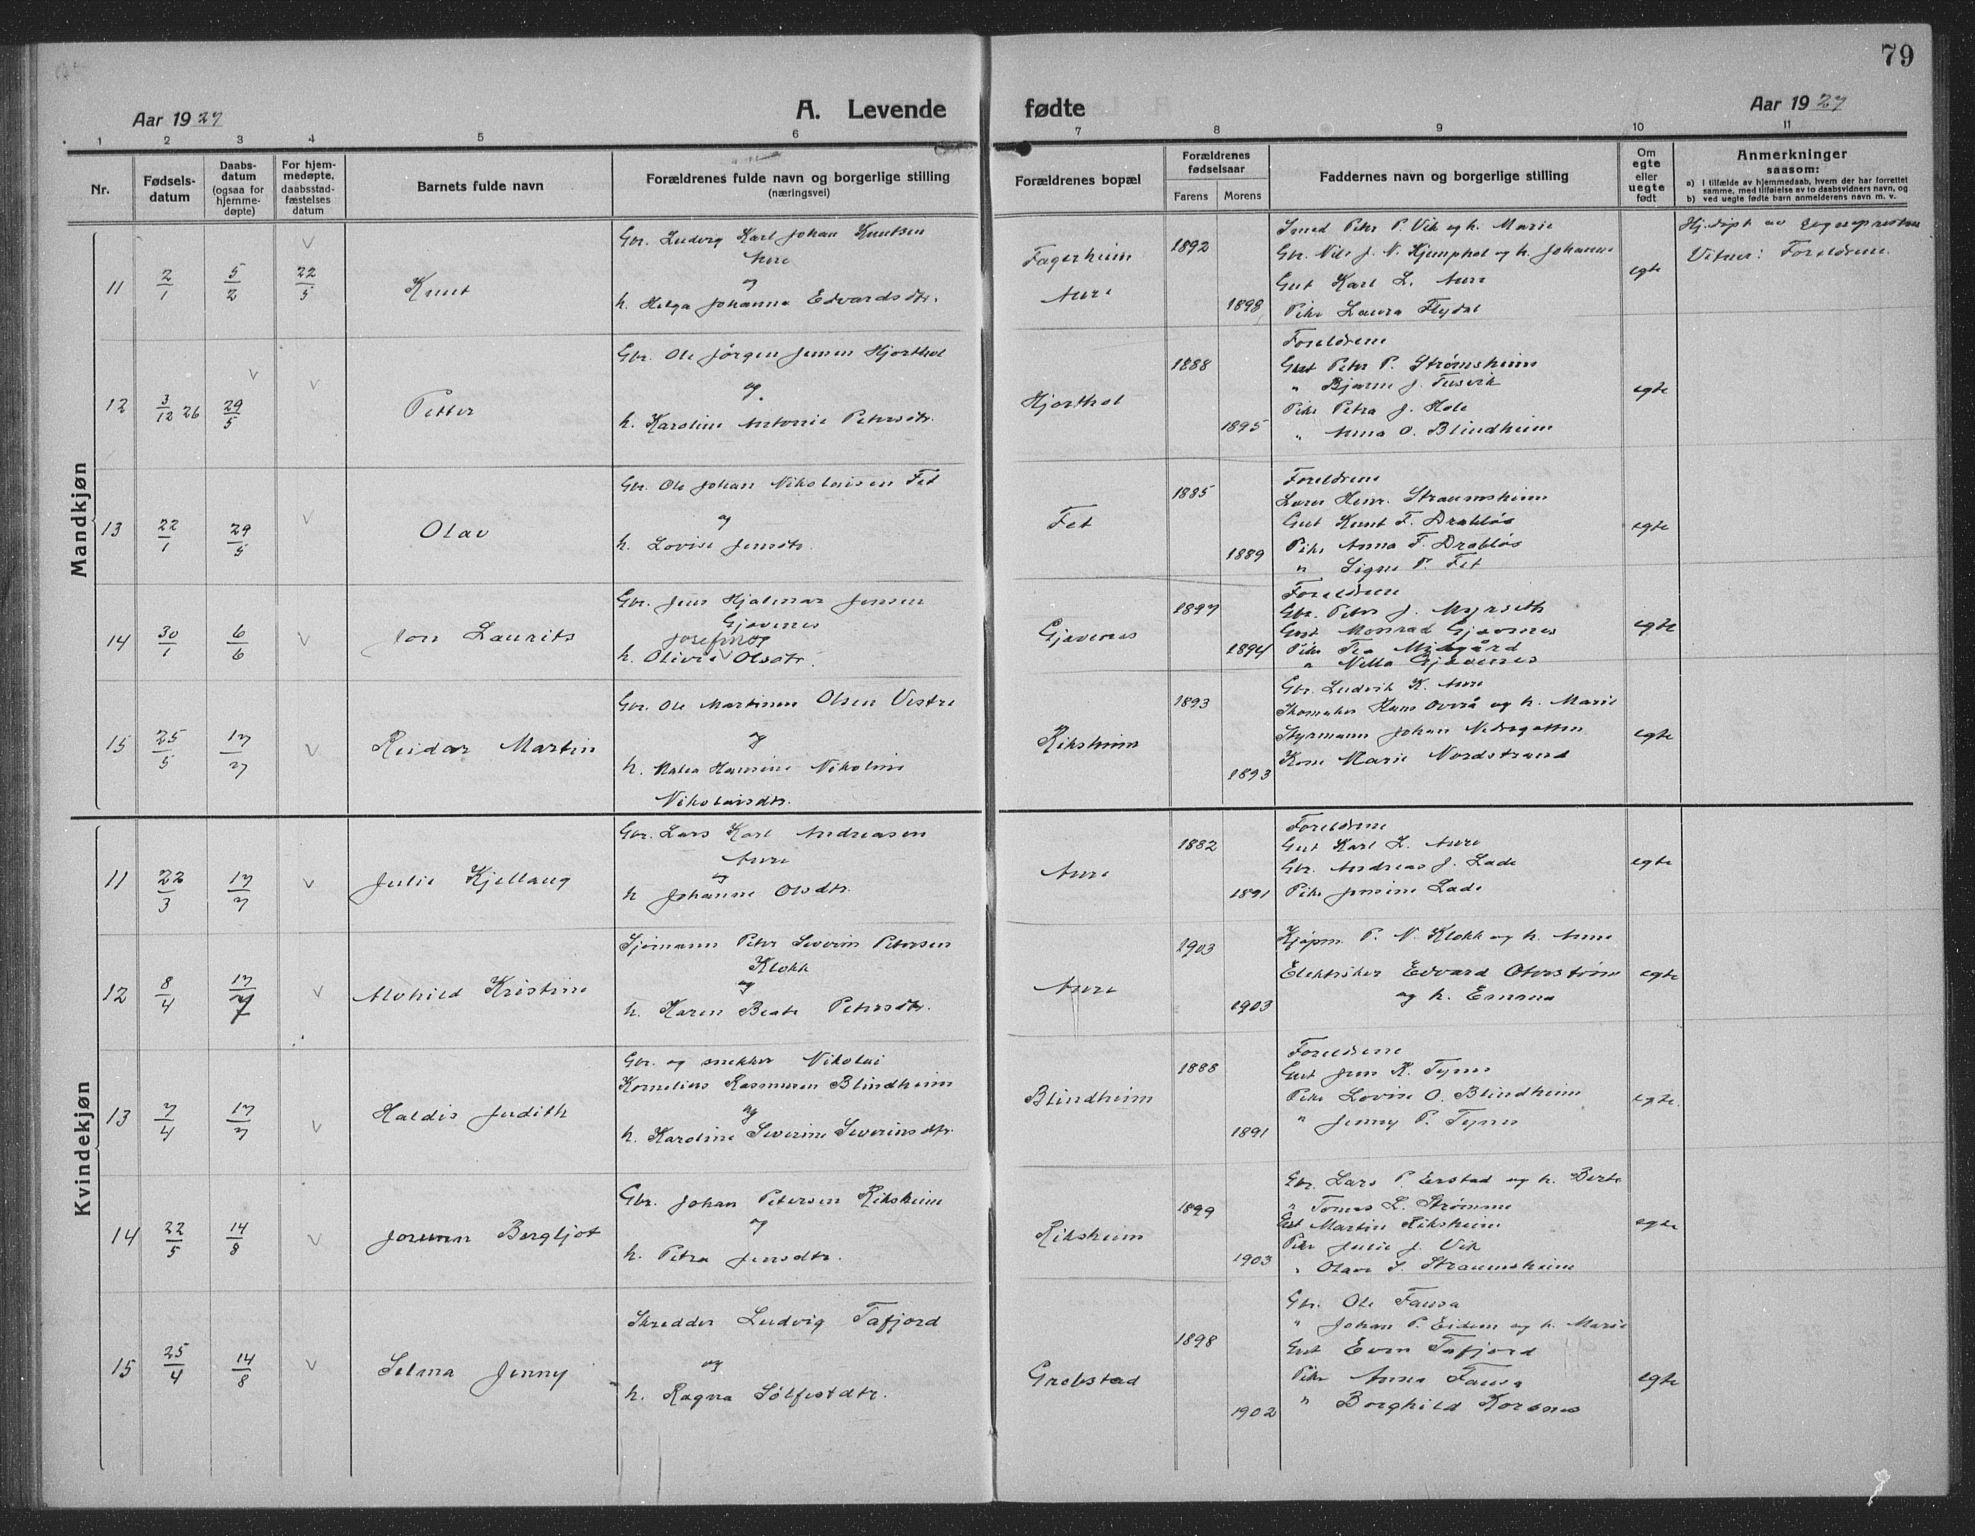 79
Aar 1927
A. Levende fødte
Aar 1927
1 2 3 4 5 6 7 8 9 10 11
Nr.
Fødsels-
datum
Daabs-
datum
(ogsaa for
hjemme-
døpte)
For hjem-
medøpte,
daabsstad-
fæstelses
datum
Barnets fulde navn
Forældrenes fulde navn og borgerlige stilling
(næringsvei)
Forældrenes bopæl
Forældrenes
fødselsaar
Farens Morens
Faddernes navn og borgerlig stilling
Om
egte
eller
uegte
født
Anmerkninger
saasom:
a) I tilfælde av hjemmedaab, hvem der har forrettet
samme, med tilføielse av to daabsvidners navn, og
b) ved uegte fødte barn anmelderens navn m. v.
Mandkjøn
11 2/1 5/2 22/5 Knut
Gbr. Ludvig Karl Johan Knutsen
Aure
og
h. Helga Johanna Edvardsdtr.
Fagerheim
Aure
1892
1898
Smed Petr P. Vik og h. Marie
Gbr. Nils J. N. Hjemphol og h. Johanne
Gut Karl L. Aure
Pike Laura Flydal
egte
Hj.døpt av sognepresten
Vitner: Foreldrene.
12 3/12 26 29/5 Petter
Gbr. Ole Jørgen Jensen Hjorthol
og
h. Karoline Antonie Petersdtr.
Hjorthol
1888
1895
Foreldrene
Gut Petr P. Strømsheim
" Bjarne J. Tusvik
Pike Petra J. Hole
" Anna O. Blindheim
egte
13 22/1 29/5 Olav
Gbr. Ole Johan Nikolaisen Fet
og
h. Lovise Jensdtr.
Fet
1885
1889
Foreldrene
Lærer Henr. Straumsheim
Gut Knut F. Drabløs
Pike Anna F. Drabløs
" Signe P. Fet
egte
14 30/1 6/6 Jon Laurits
Gbr. Jens Hjalmar Jensen
Gjævenes
Josefine og
h. Olivie Olsdtr.
Gjævenes
1897
1894
Foreldrene
Gbr. Peter J. Myrseth
Gut Monrad Gjævnes
Pike Tea Midgård
" Nella Gjævenes
egte
15 25/5 17/7 Reidar Martin
Gbr. Ole Martinus Olsen Vestre
og
h. Malea Hansine Nikoline
Nikolaisdtr.
Riksheim
1893
1893
Gbr. Ludvik K. Aure
Skomaker Hans Overå og h. Marie
Styrmann Johan Nedregotten
Kone Marie Nordstrand
egte
Kvindekjøn
11 22/3 17/7 Julie Kjellaug
Gbr. Lars Karl Andreasen
Aure
og
h Johanne Olsdtr.
Aure
1882
1891
Foreldrene
Gut Karl L. Aure
Gbr. Andreas J. Lade
Pike Jensine Lade
egte
12 8/4 17/7 Alvhild Kristine
Sjømann Peter Severin Petersen
Klokk
og
h. Karen Beate Petersdtr.
Aure
1903
1903
Kjøpm P. N. Klokk og h. Anne
Elektriker Edvard Overstrøm
og h. Emma
egte
13 7/4 17/7 Haldis Judith
Gbr. og snekker Nikolai
Kornelius Rasmussen Blindheim
og
h. Karoline Severine Severinsdtr.
Blindheim
1888
1891
Foreldrene
Gut Jens R. Tynes
Pike Lovise O. Blindheim
" Jenny P. Tynes
egte.
14 22/5 14/8 Jorunn Bergljot
Gbr. Johan Petersen Riksheim
og
h. Petra Jensdtr.
Riksheim
1899
1903
Gbr. Lars P. Erstad og h. Berte
" Tomas L. Strømme
Gut Martin Riksheim
Pike Julie J. Vik
" Olave S. Straumsheim
egte
15 25/4 14/8 Selma Jenny
Skredder Ludvig Tafjord
og
h. Ragna Sølfestdtr.
Grebstad
1898
1902
Gbr. Ole Fausa
" Johan P. Eidem og h. Marie
Gut Even Tafjord
Pike Anna Fausa
" Borghild Korsnes
egte